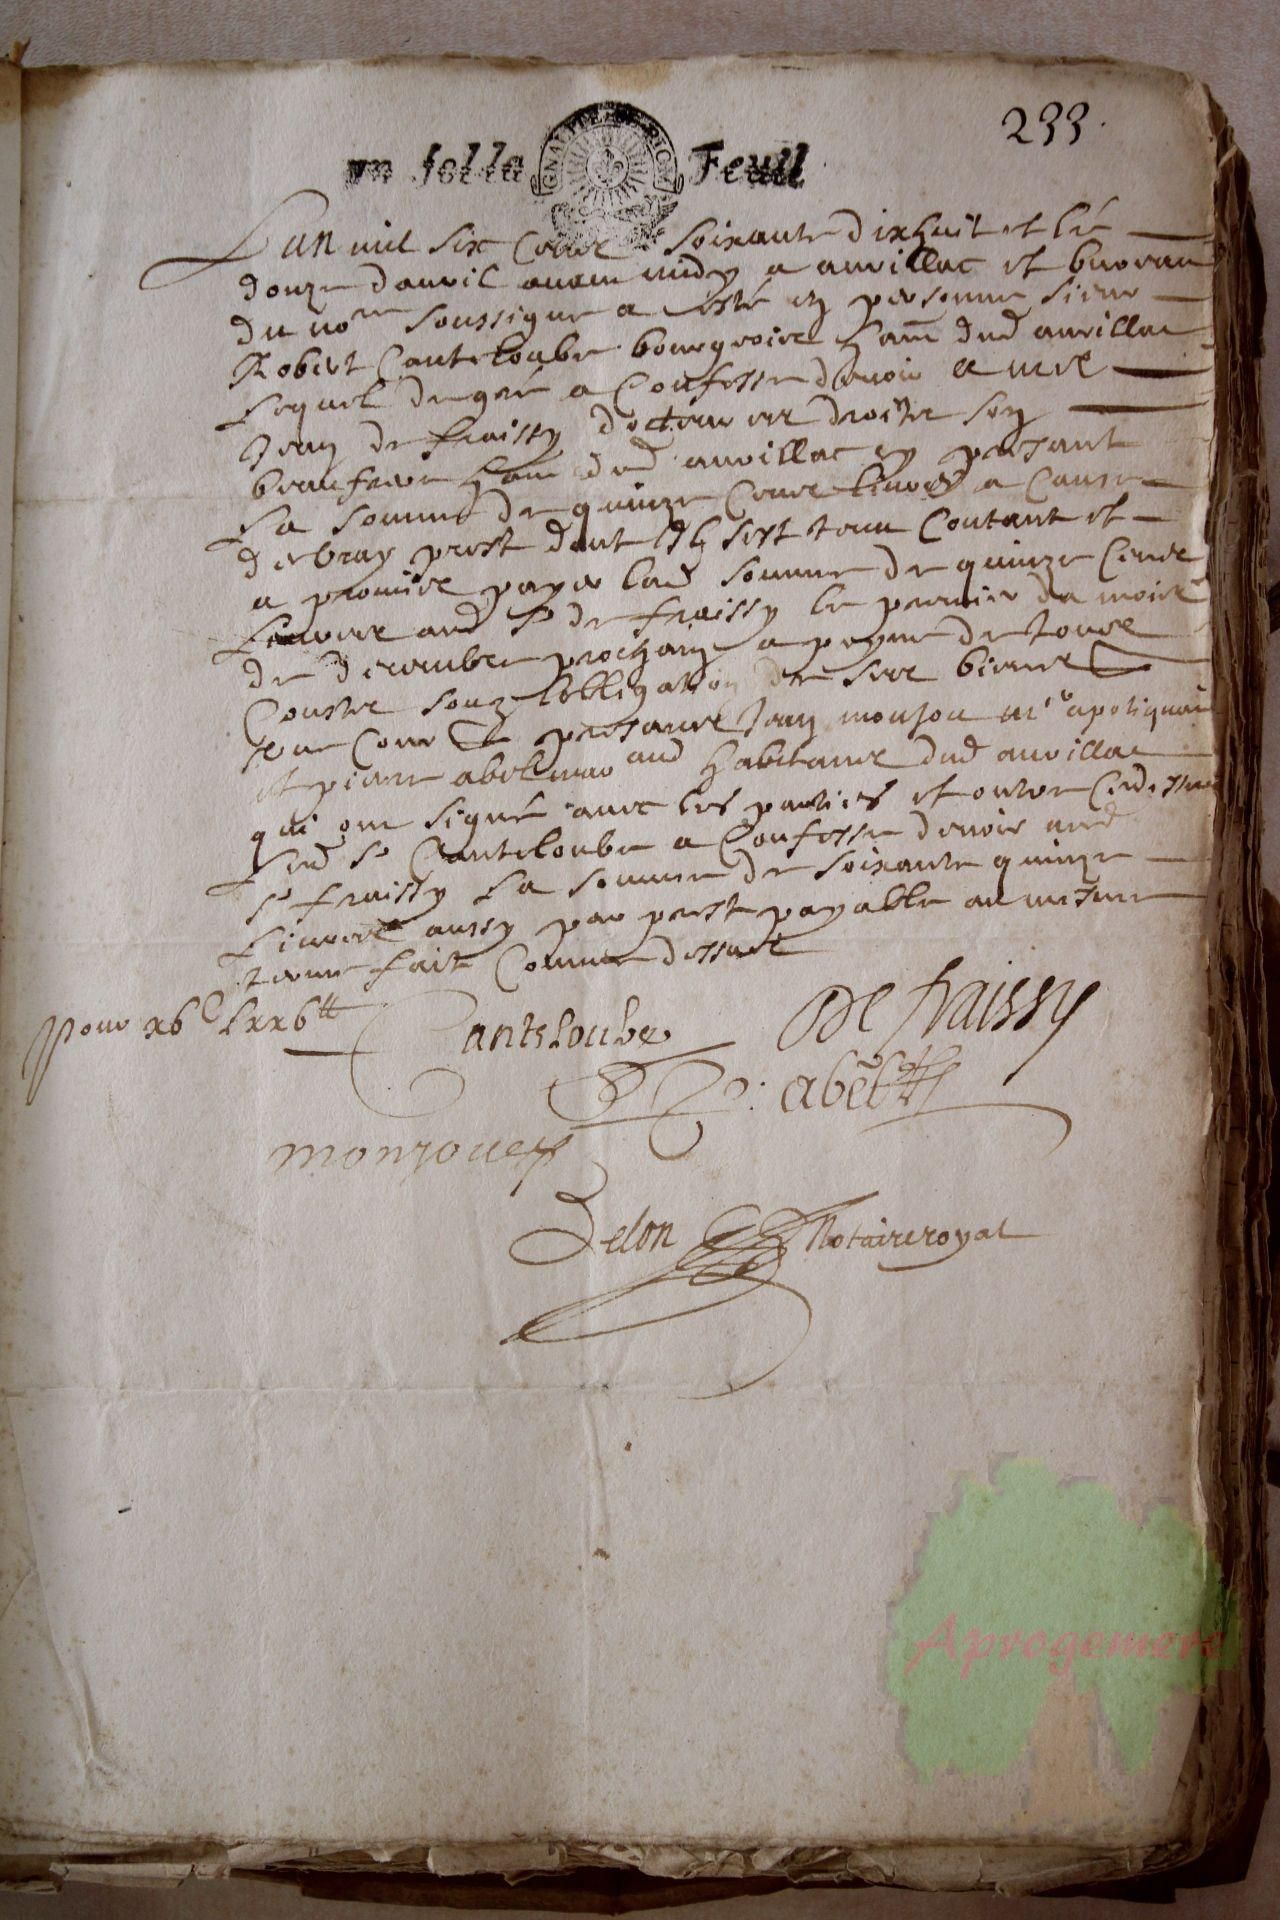 233.
un sol la Feuil
GNALITE DE RIOM
Lan mil six Cens soixante dixhuit et lé
douze davril avant midy a aurillac et bureau
du nore soussigné a esté en personne sieur
Robert Canteloube bourgeois habt dud aurillac
Lequel de gré a Confessé devoir a me
Jean de fraissy docteur es droits son
beaufrere habt dud aurillac
La somme de quinze Cens livres a Cause
de vray prest dont Il sest tenu Contant et
a promis payer lad somme de quinze Cens
Livres aud sr de fraissy le premier du mois
de decembre prochain a peyne de tous
Coustz souz lobligation de ses biens
presans Jean monjou me apotiquaire
et pierre abel mar and habitans dud aurillac
qui ont signé avec les parties et outre Cedessus
Led sr Canteloube a Confessé devoir aud
sr fraissy La somme de soixante quinze
Livres aussy par prest payable au mesme
terme fait Comme dessus
Pour xbc Lxxbtt
Canteloube De fraissy
abel
monjou
Delon Notaire royal
Aprogemere